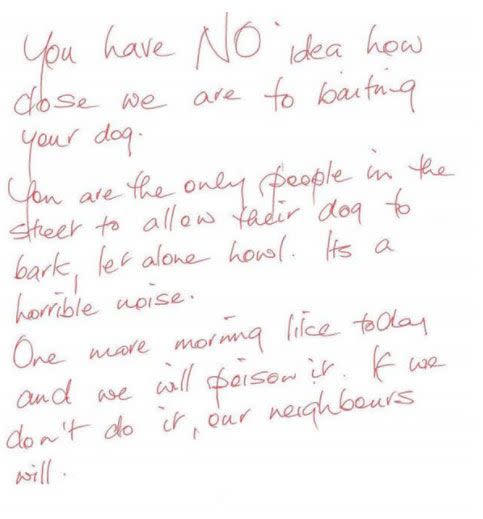 You have NO idea how
close we are to baiting
your dog.
You are the only people in the
street to allow their dog to
bark, let alone howl. Its a
horrible noise.
One more morning like today
and we will poison it. If we
don't do it, our neighbours
will.